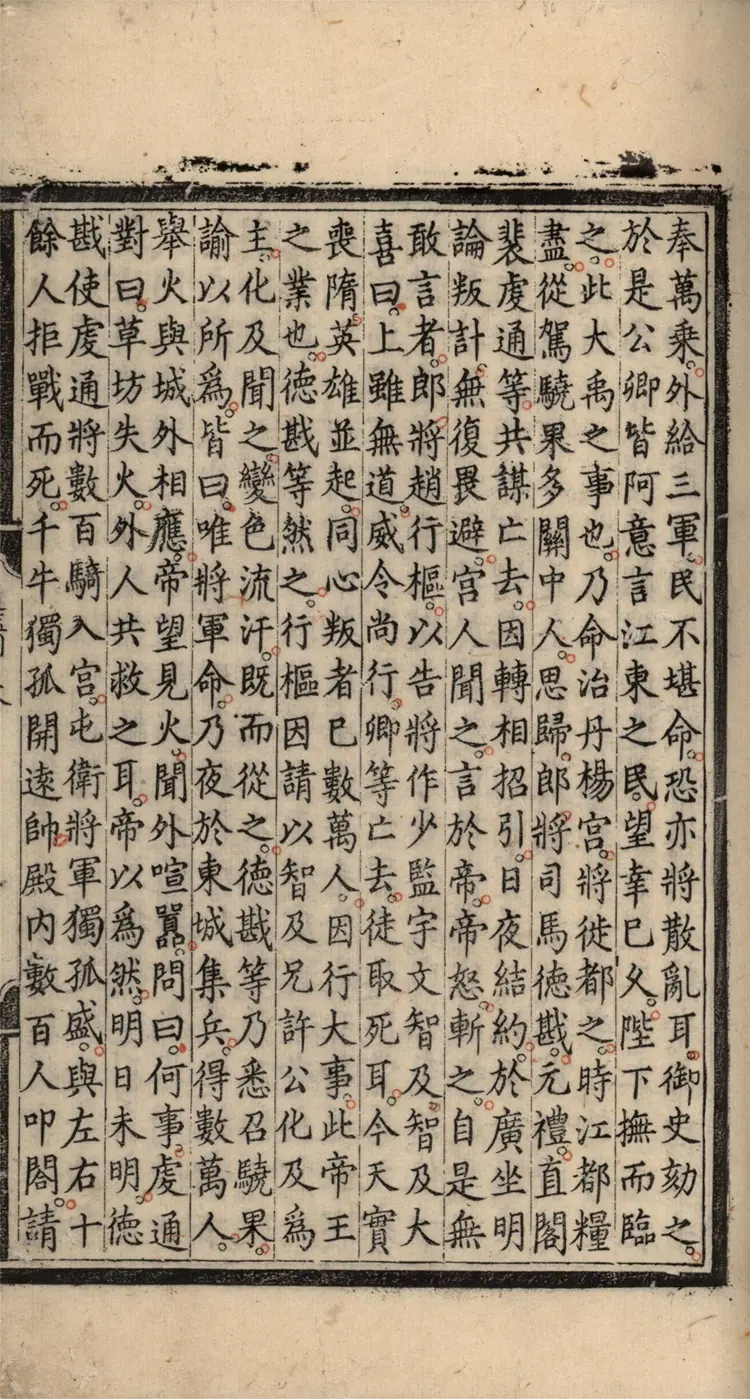 奉萬乘外給三軍民不堪命恐亦將散亂耳御史劾之
於是公卿皆阿意言江東之民望幸已久陛下撫而臨
之此大禹之事也乃命治丹楊宮將徙都之時江都糧
盡從駕驍果多關中人思歸郎將司馬德戡元禮直閣
裴虔通等共謀亡去因轉相招引日夜結約於廣坐明
論叛計無復畏避宮人聞之言於帝帝怒斬之自是無
敢言者郎將趙行樞以告將作少監宇文智及智及大
喜曰上雖無道威令尚行卿等亡去徒取死耳今天實
喪隋英雄並起同心叛者已數萬人因行大事此帝王
之業也德戡等然之行樞因請以智及兄許公化及爲
主化及聞之變色流汗既而從之德戡等乃悉召驍果
諭以所爲皆曰唯將軍命乃夜於東城集兵得數萬人
舉火與城外相應帝望見火聞外喧囂問曰何事虔通
對曰草坊失火外人共救之耳帝以爲然明日未明德
戡使虔通將數百騎入宮屯衛將軍獨孤盛與左右十
餘人拒戰而死千牛獨孤開遠帥殿內數百人叩閤請